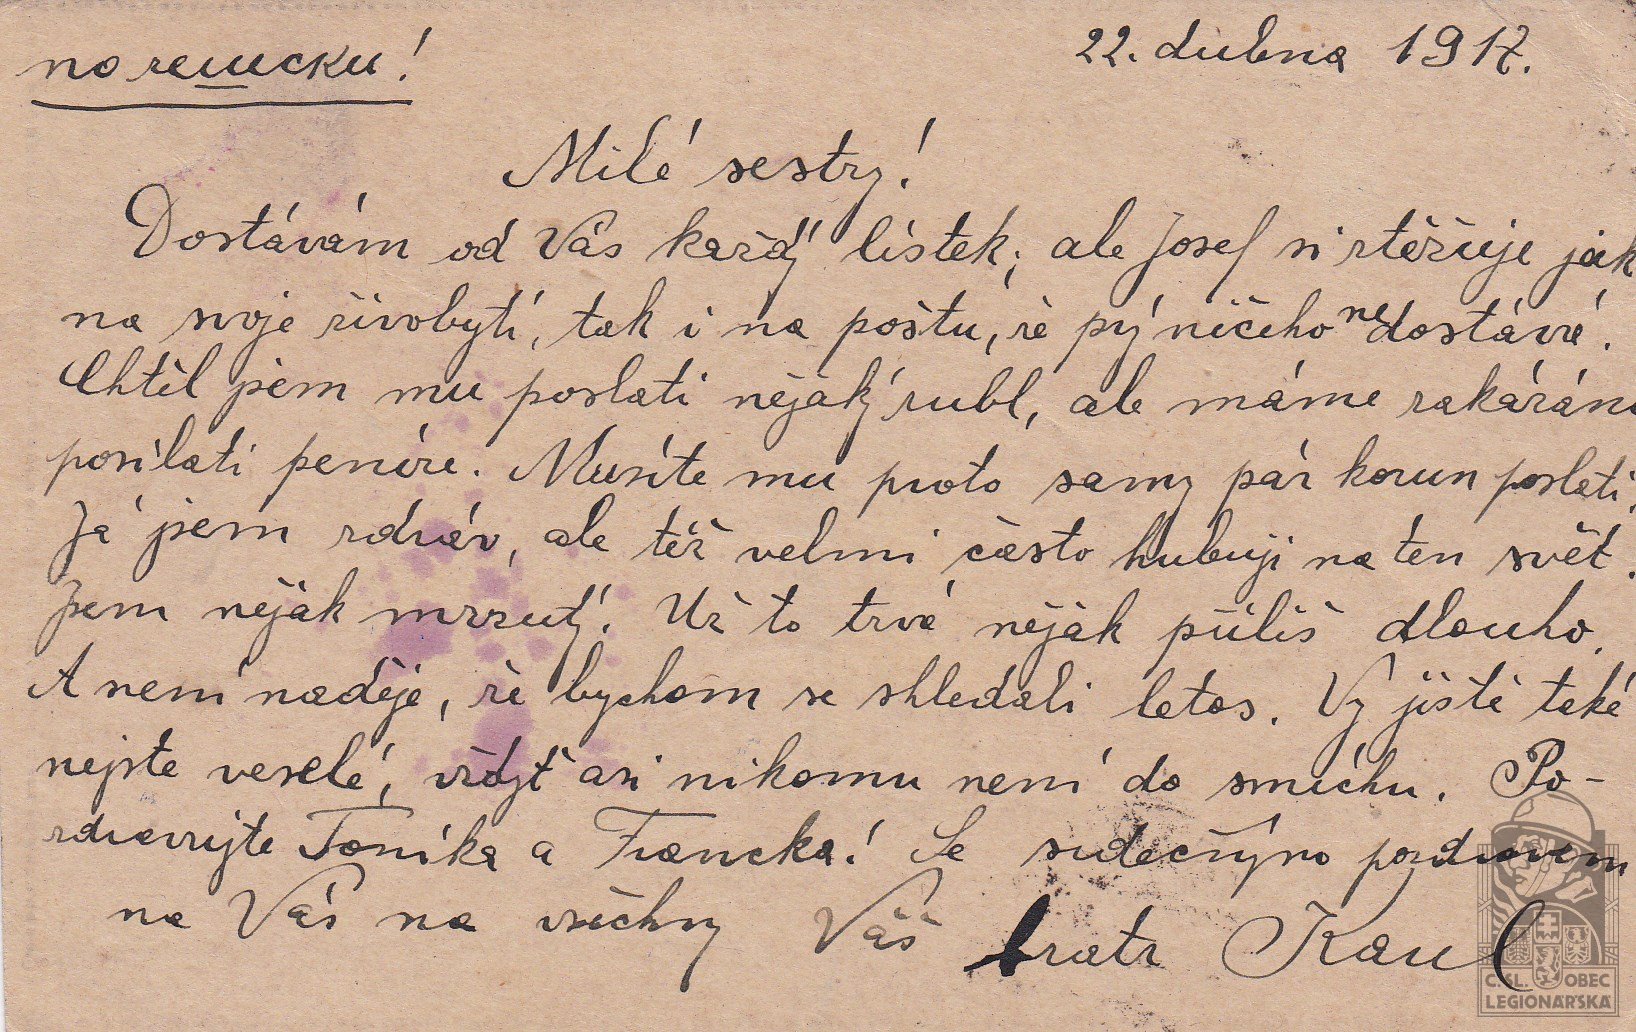 по немецки!
22. dubna 1917.
Milé sestry!
Dostávám od Vás každý lístek; ale Josef si stěžuje jak
na svoje živobytí, tak i na poštu, že prý ničeho nedostává.
Chtěl jsem mu poslati nějaký rubl, ale máme zakázáno
posílati peníze. Musíte mu proto samy pár korun poslati.
Já jsem zdráv, ale též velmi často hubuji na ten svět.
Jsem nějak mrzutý. Už to trvá nějak příliš dlouho.
A není naděje, že bychom se shledali letos. Vy jistě také
nejste veselé, vždyť asi nikomu není do smíchu. Po-
zdravujte Toníka a Francka! Se srdečným pozdravem
na Vás na všechny Váš bratr Karel
Č.SL. OBEC
LEGIONÁŘSKÁ